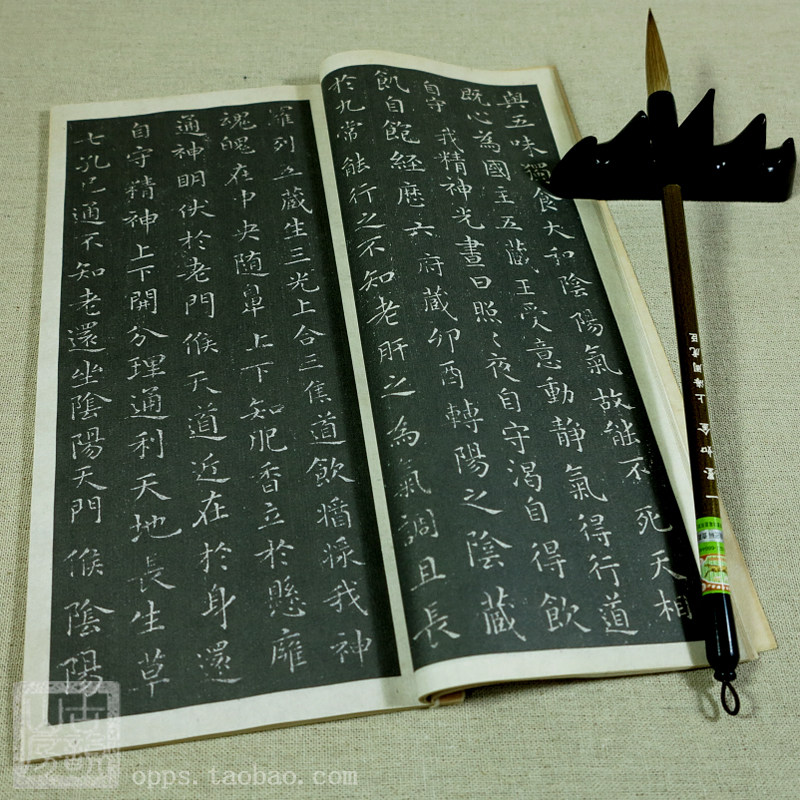 與五味獨食大和陰陽氣故能不死天相
既心為國主五藏王受意動靜氣得行道
自守我精神光晝日照〻夜自守渴自得飲
飢自飽經歷六府藏卯酉轉陽之陰藏
於九常能行之不知老肝之為氣調且長
羅列五藏生三光上合三焦道飲漿我神
魂魄在中央隨鼻上下知肥香立於懸雍
通神明伏於老門候天道近在於身還
自守精神上下開分理通利天地長生草
七孔已通不知老還坐陰陽天門候陰陽
上海周虎臣
opps.taobao.com